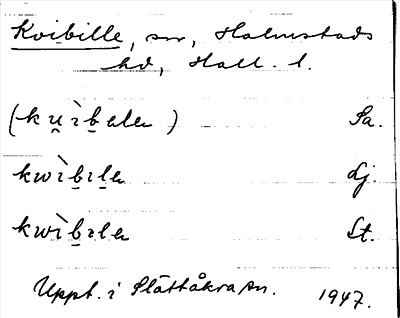 Kvibille, sn, Halmstads
hd, Hall. l.
(ku̯ìb̲ela) Sa.
kwìb̲ı̲la Lj.
kwìb̲ıla St.
Uppt. i Slättåkra sn. 1947.